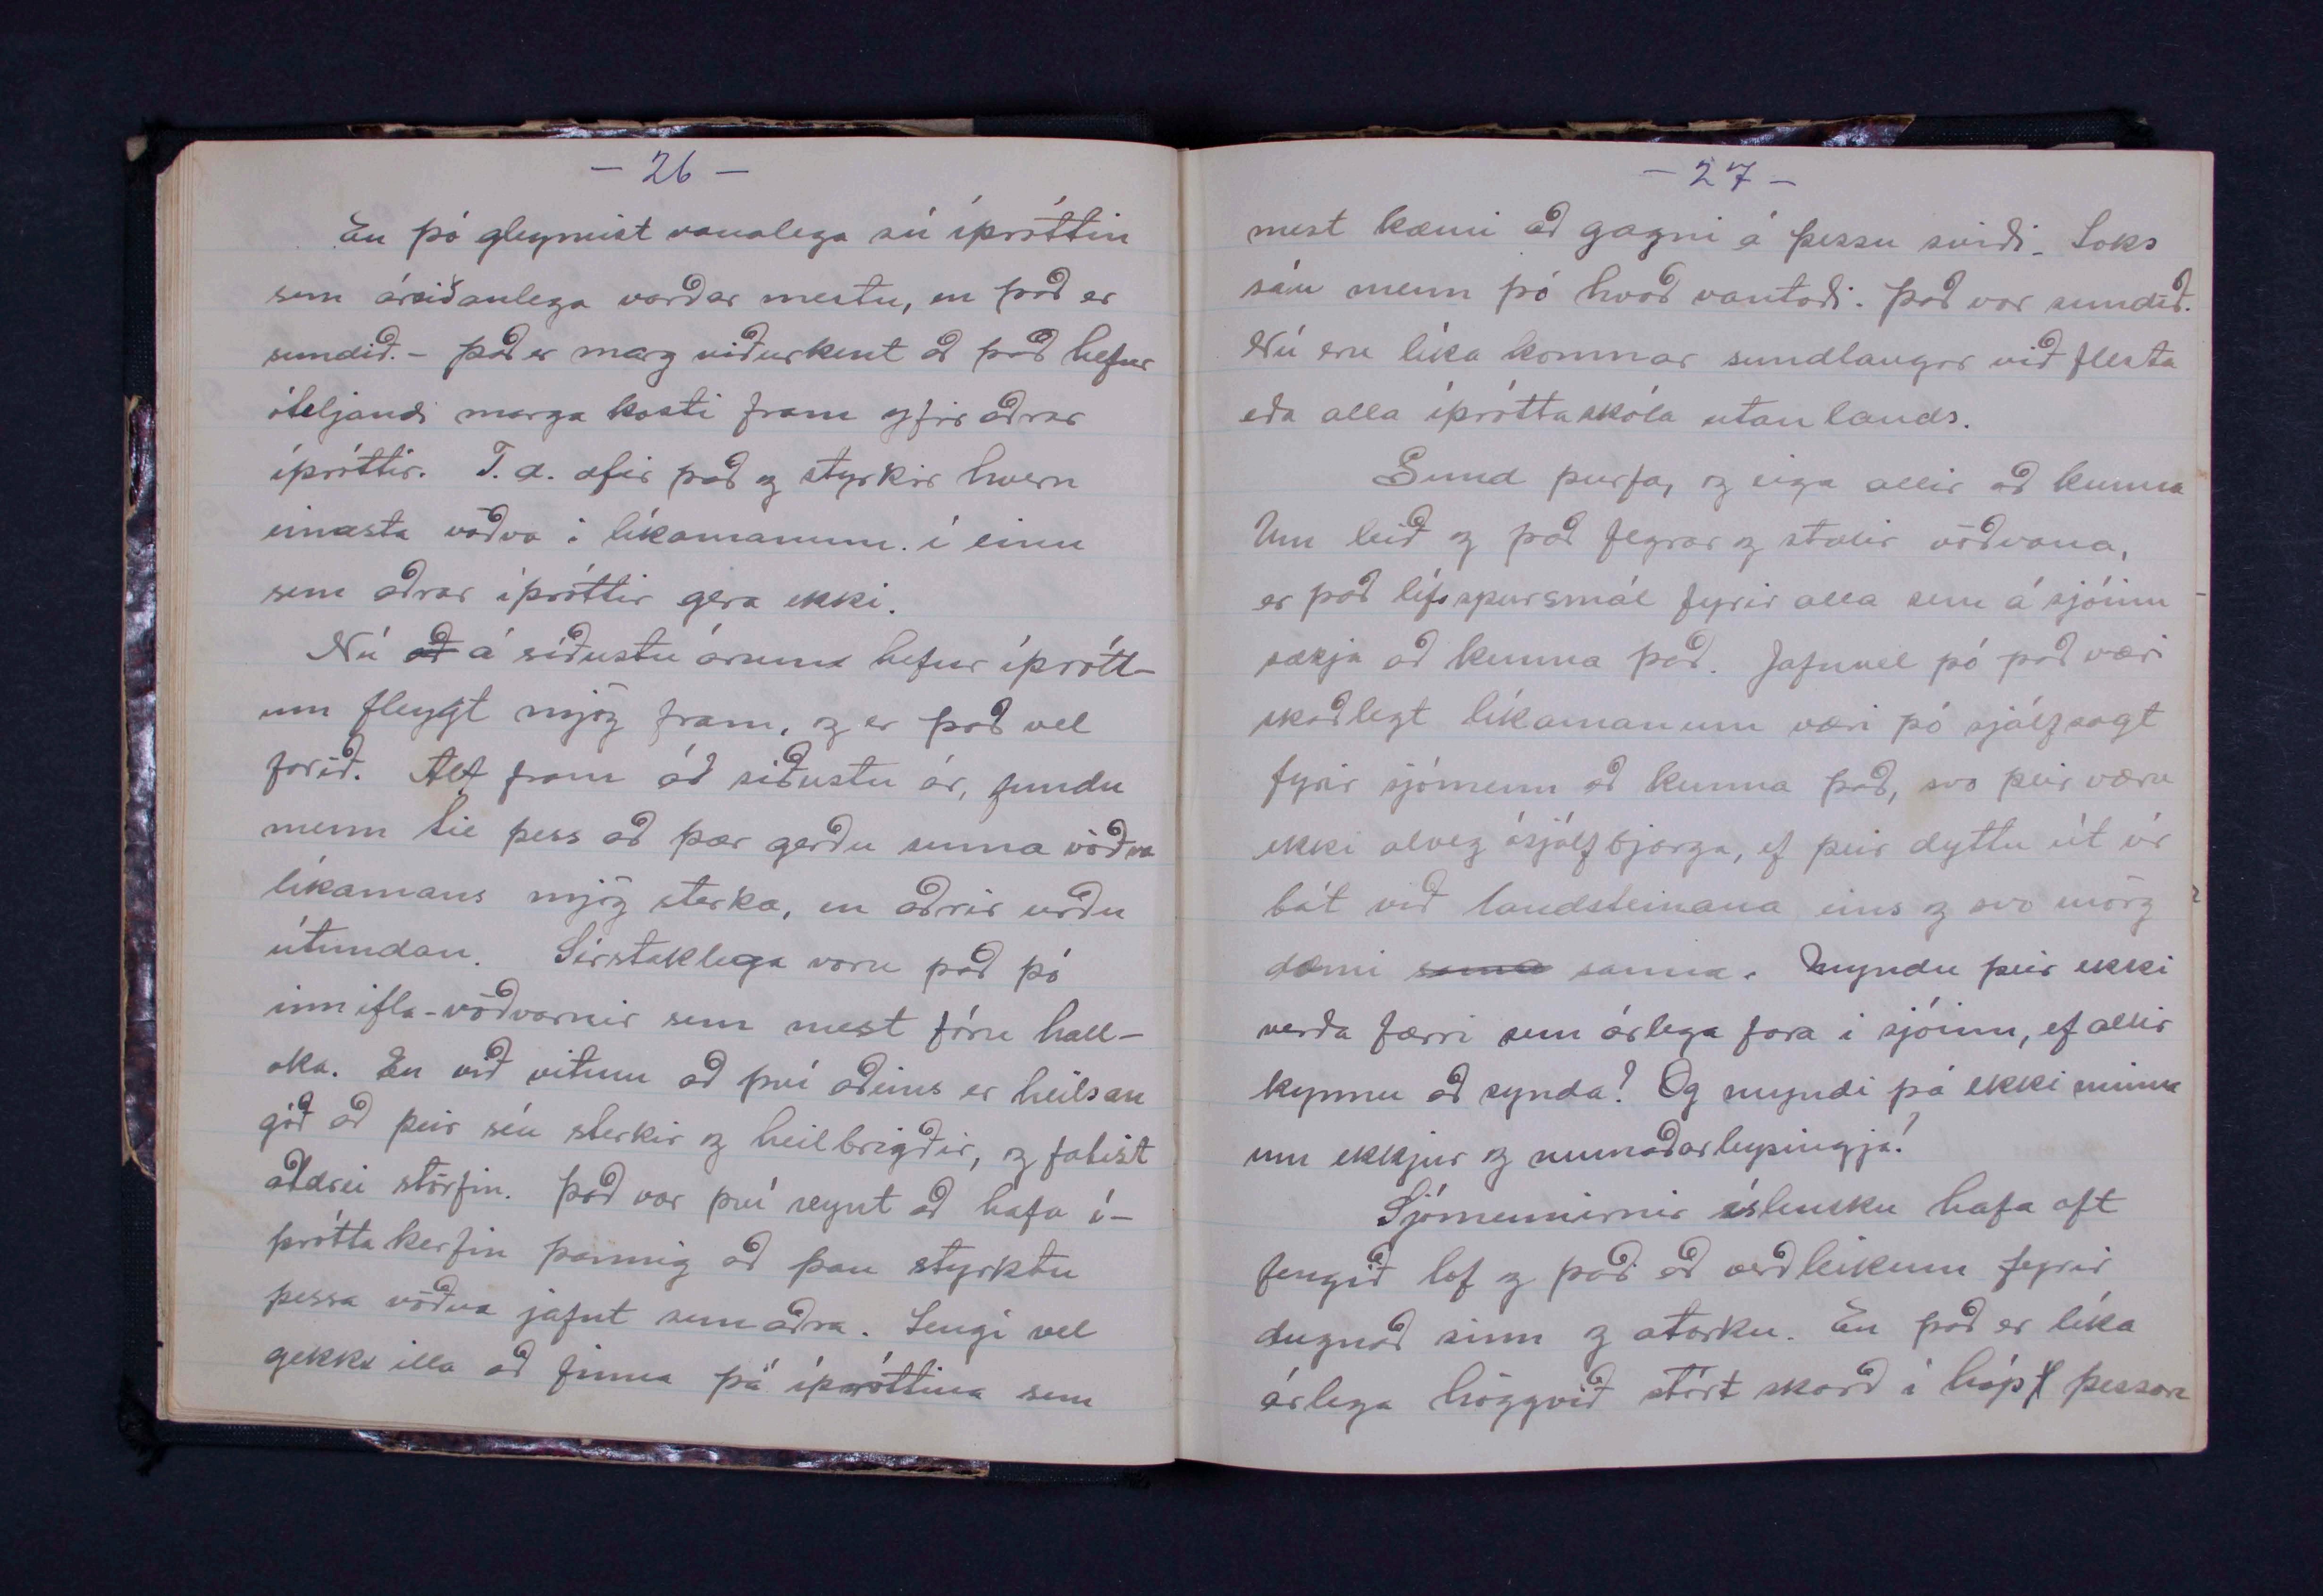 - 26 -
En þó gleymist vanalega sú íþróttin
sem áreiðanlega varðar mestu, en það er
sundið. - Það er marg viðurkent að það hefur
óteljandi marga kosti fram yfir aðrar
íþróttir. T.d. æfir það og styrkir hvern
einasta vöðva í líkamanum í einu
sem aðrar íþróttir gera ekki.
Nú að á síðustu árum hefur íþrótt-
um fleygt mjög fram, og er það vel
farið. Alt fram að síðustu ár, fundu
menn til þess að þær gerðu sunna vöðva
líkamans mjög sterka, en aðrir urðu
útundan. Sérstaklega voru það þó
innifla-vöðvarnir sem mest fóru hall-
oka. En við vitum að því aðeins er heilsan
góð að þeir séu sterkir og heilbrigðir, og fatist
aldrei störfin. Það var því reynt að hafa í-
þróttakerfin þannig að þau styrktu
þessa vöðva jafnt sem aðra. Lengi vel
gekk illa að finna þá íþróttina sem
- 27 -
mest kæmi að gagni á þessu sviði. Loks
sáu menn þó hvað vantaði. Það var sundið.
Nú eru líka komnar sundlaugar við flesta
eða alla íþróttaskóla utanlands.
Sund þurfa, og eiga allir að kunna
Um leið og það fegrar og stælir vöðvana,
er það lífsspursmál fyrir alla sem á sjóinn
sækja að kunna það. Jafnvel þó það væri
skaðlegt líkamanum væri þó sjálfsagt
fyrir sjómenn að kunna það, svo þeir væru
ekki alveg ósjálfbjarga, ef þeir dyttu út úr
bát við landsteinana eins og svo mörg
dæmi sanna sanna. Myndu þeir ekki
verða færri sem árlega fara í sjóinn, ef allir
kynnu að synda? Og myndi þá ekki minna
um ekkjur og munaðarleysingja!
Sjómennirnir íslensku hafa oft
fengið lof og það að verðleikum fyrir
dugnað sinn og atorku. En það er líka
árlega höggvið stórt skarð í hóp þessara